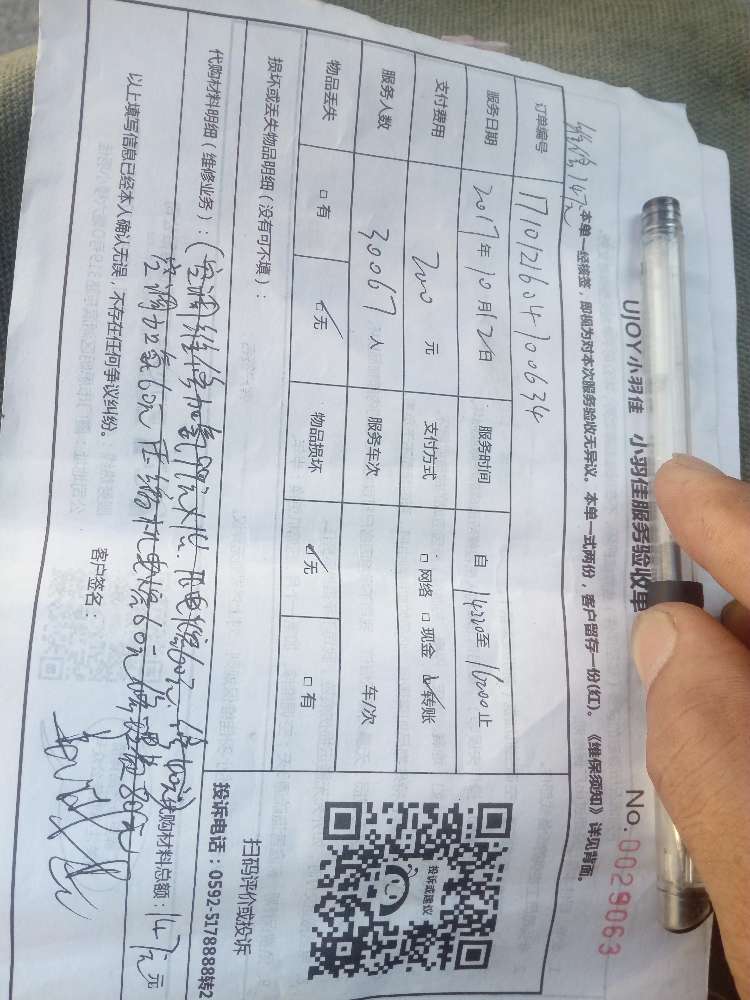 UJOY小羽佳 小羽佳服务验收单
No.0029063
本单一经接签，即视为对本次服务验收无异议。本单一式两份，客户留存一份(红)。《维保须知》详见背面。
订单编号 1710121604700634
服务日期 2017年10月12日 服务时间 自 14:20至 16:00止
支付费用 200 元 支付方式 □网络 □现金 ☑转账
服务人数 30067 人 服务车次 车/次
物品丢失 □有 ☑无 物品损坏 ☑无 □有
损坏或丢失物品明细（没有可填）：
代购材料明细（维修业务）：
代购材料总额：147元
空调加氟60元 压缩机电容60元
以上填写信息已经本人确认无误，不存在任何争议纠纷。
客户签名：
投诉或建议
扫码评价或投诉
投诉电话：0592-5178888转2